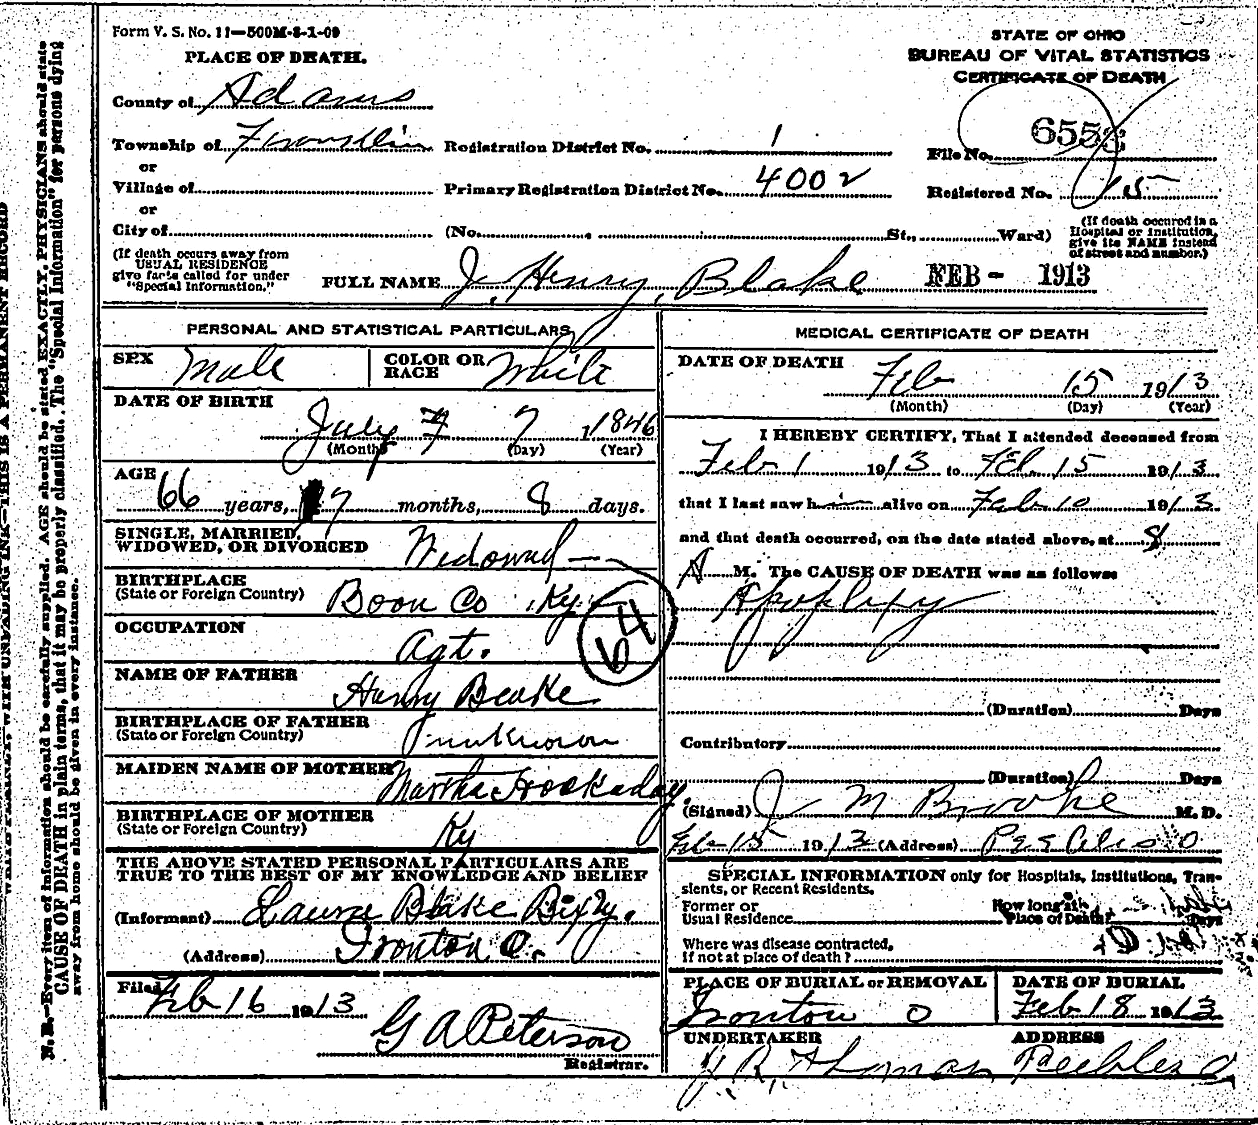 Form V. S. No. 11—500M-8-1-09
PLACE OF DEATH.
STATE OF OHIO
BUREAU OF VITAL STATISTICS
CERTIFICATE OF DEATH
County of Adams
Township of Franklin Registration District No. 1
File No. 6553
or
Village of Primary Registration District No. 4002
Registered No. 15
or
City of (No. , St., Ward)
(If death occured in a
Hospital or Institution,
give its NAME instead
of street and number.)
(If death occurs away from
USUAL RESIDENCE
give facts called for under
"Special Information.")
FULL NAME J. Henry Blake
FEB - 1913
PERSONAL AND STATISTICAL PARTICULARS
SEX Male
COLOR OR RACE White
DATE OF BIRTH
July 7 7, 1846
(Month) (Day) (Year)
AGE
66 years, 7 months, 8 days.
SINGLE, MARRIED,
WIDOWED, OR DIVORCED Widowed
BIRTHPLACE
(State or Foreign Country) Boon Co Ky.
64
OCCUPATION
Agt.
NAME OF FATHER
Henry Beake
BIRTHPLACE OF FATHER
(State or Foreign Country) Unknown
MAIDEN NAME OF MOTHER
Martha Hockaday
BIRTHPLACE OF MOTHER
(State or Foreign Country) Ky
THE ABOVE STATED PERSONAL PARTICULARS ARE
TRUE TO THE BEST OF MY KNOWLEDGE AND BELIEF
(Informant) Laura Blake Bixby.
(Address) Ironton O.
Filed Feb 16 1913
G A Peterson
Registrar.
MEDICAL CERTIFICATE OF DEATH
DATE OF DEATH
Feb 15 1913
(Month) (Day) (Year)
I HEREBY CERTIFY, That I attended deceased from
Feb 1 1913 to Feb. 15 1913
that I last saw him alive on Feb 10 1913
and that death occurred, on the date stated above, at 8
A M. The CAUSE OF DEATH was as follows
Apoplexy
(Duration) Days
Contributory
(Duration) Days
(Signed) J M Brooke M.D.
Feb 15 1913 (Address) Peebles O
SPECIAL INFORMATION only for Hospitals, Institutions, Tran-
sients, or Recent Residents.
Former or
Usual Residence
How long at
Place of Death? Days
Where was disease contracted,
If not at place of death?
PLACE OF BURIAL or REMOVAL
Ironton O
DATE OF BURIAL
Feb 18 1913
UNDERTAKER
ADDRESS
Thomas Peebles O
N. B.—Every item of information should be carefully supplied. AGE should be stated EXACTLY. PHYSICIANS should state
CAUSE OF DEATH in plain terms, that it may be properly classified. The "Special Information" for persons dying
away from home should be given in every instance.
WITH UNFADING INK—THIS IS A PERMANENT RECORD